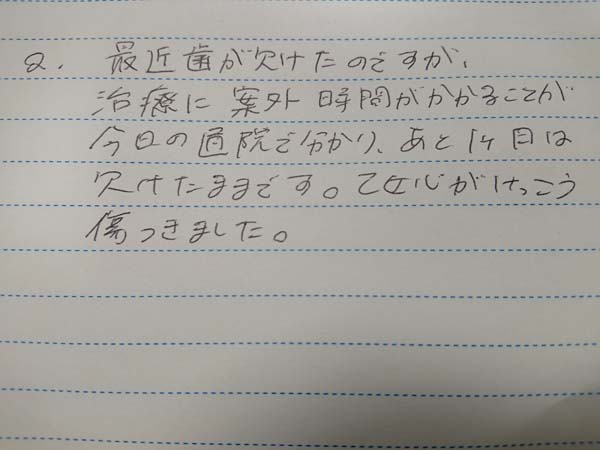 2. 最近歯が欠けたのですが、
治療に案外時間がかかることが
今日の通院で分かり、あと1ヶ月は
欠けたままです。乙女心がけっこう
傷つきました。